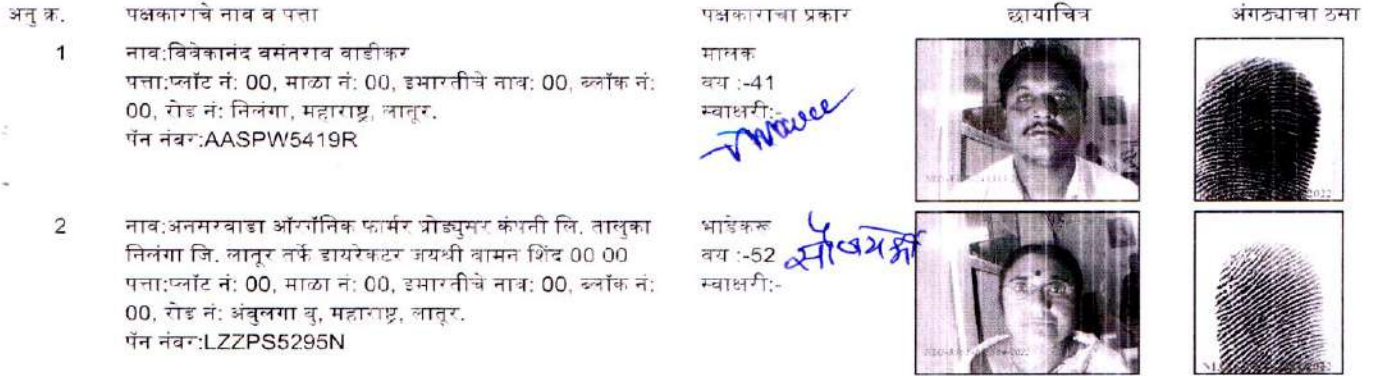 अनु क्र. पक्षकाराचे नाव व पत्ता पक्षकाराचा प्रकार छायाचित्र अंगठ्याचा ठसा
1 नाव:विवेकानंद वसंतराव वाडीकर मालक
पत्ता:प्लॉट नं: 00, माळा नं: 00, इमारतीचे नाव: 00, ब्लॉक नं: वय :-41
00, रोड नं: निलंगा, महाराष्ट्र, लातूर. स्वाक्षरी:-
पॅन नंबर:AASPW5419R
2 नाव:अनसरवाडा ऑरगॅनिक फार्मर प्रोड्युसर कंपनी लि. तालुका भाडेकरू
निलंगा जि. लातूर तर्फे डायरेक्टर जयश्री वामन शिंद 00 00 वय :-52
पत्ता:प्लॉट नं: 00, माळा नं: 00, इमारतीचे नाव: 00, ब्लॉक नं: स्वाक्षरी:-
00, रोड नं: अंबुलगा बु, महाराष्ट्र, लातूर.
पॅन नंबर:LZZPS5295N